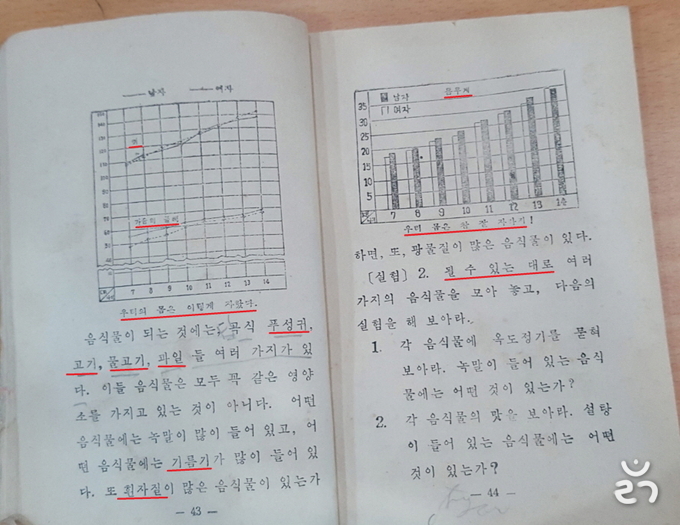 남자 여자
키
가슴의 둘레
7 8 9 10 11 12 13 14
우리의 몸은 이렇게 자랐다.
음식물이 되는 것에는, 곡식 푸성귀,
고기, 물고기, 과일 들 여러 가지가 있
다. 이들 음식물은 모두 꼭 같은 영양
소를 가지고 있는 것이 아니다. 어떤
음식물에는 녹말이 많이 들어 있고, 어
떤 음식물에는 기름기가 많이 들어 있
다. 또 흰자질이 많은 음식물이 있는가
— 43 —
남자 몸무게
여자
35
30
25
20
15
10
5
7 8 9 10 11 12 13 14
우리 몸은 참 잘 자라지!
하면, 또, 광물질이 많은 음식물이 있다.
[실험] 2. 될 수 있는 대로 여러
가지의 음식물을 모아 놓고, 다음의
실험을 해 보아라.
1. 각 음식물에 옥도정기를 묻혀
보아라. 녹말이 들어 있는 음식
물에는 어떤 것이 있는가?
2. 각 음식물의 맛을 보아라. 설탕
이 들어 있는 음식물에는 어떤
것이 있는가?
— 44 —